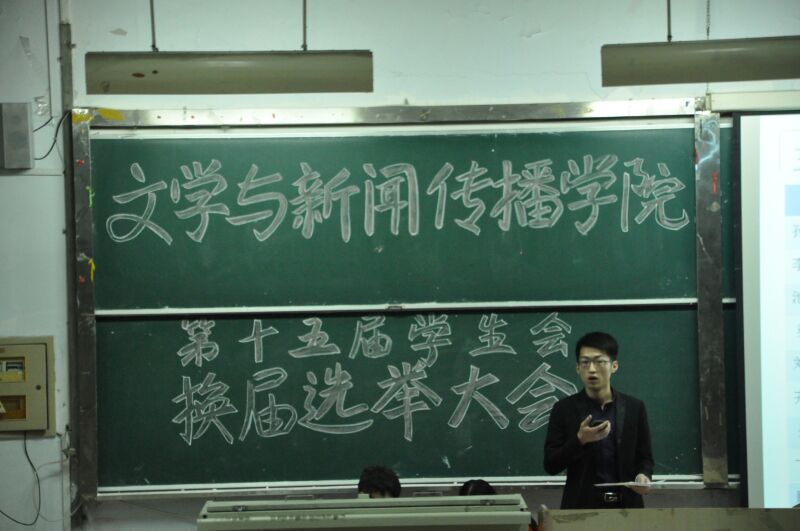 文学与新闻传播学院
第十五届学生会
换届选举大会